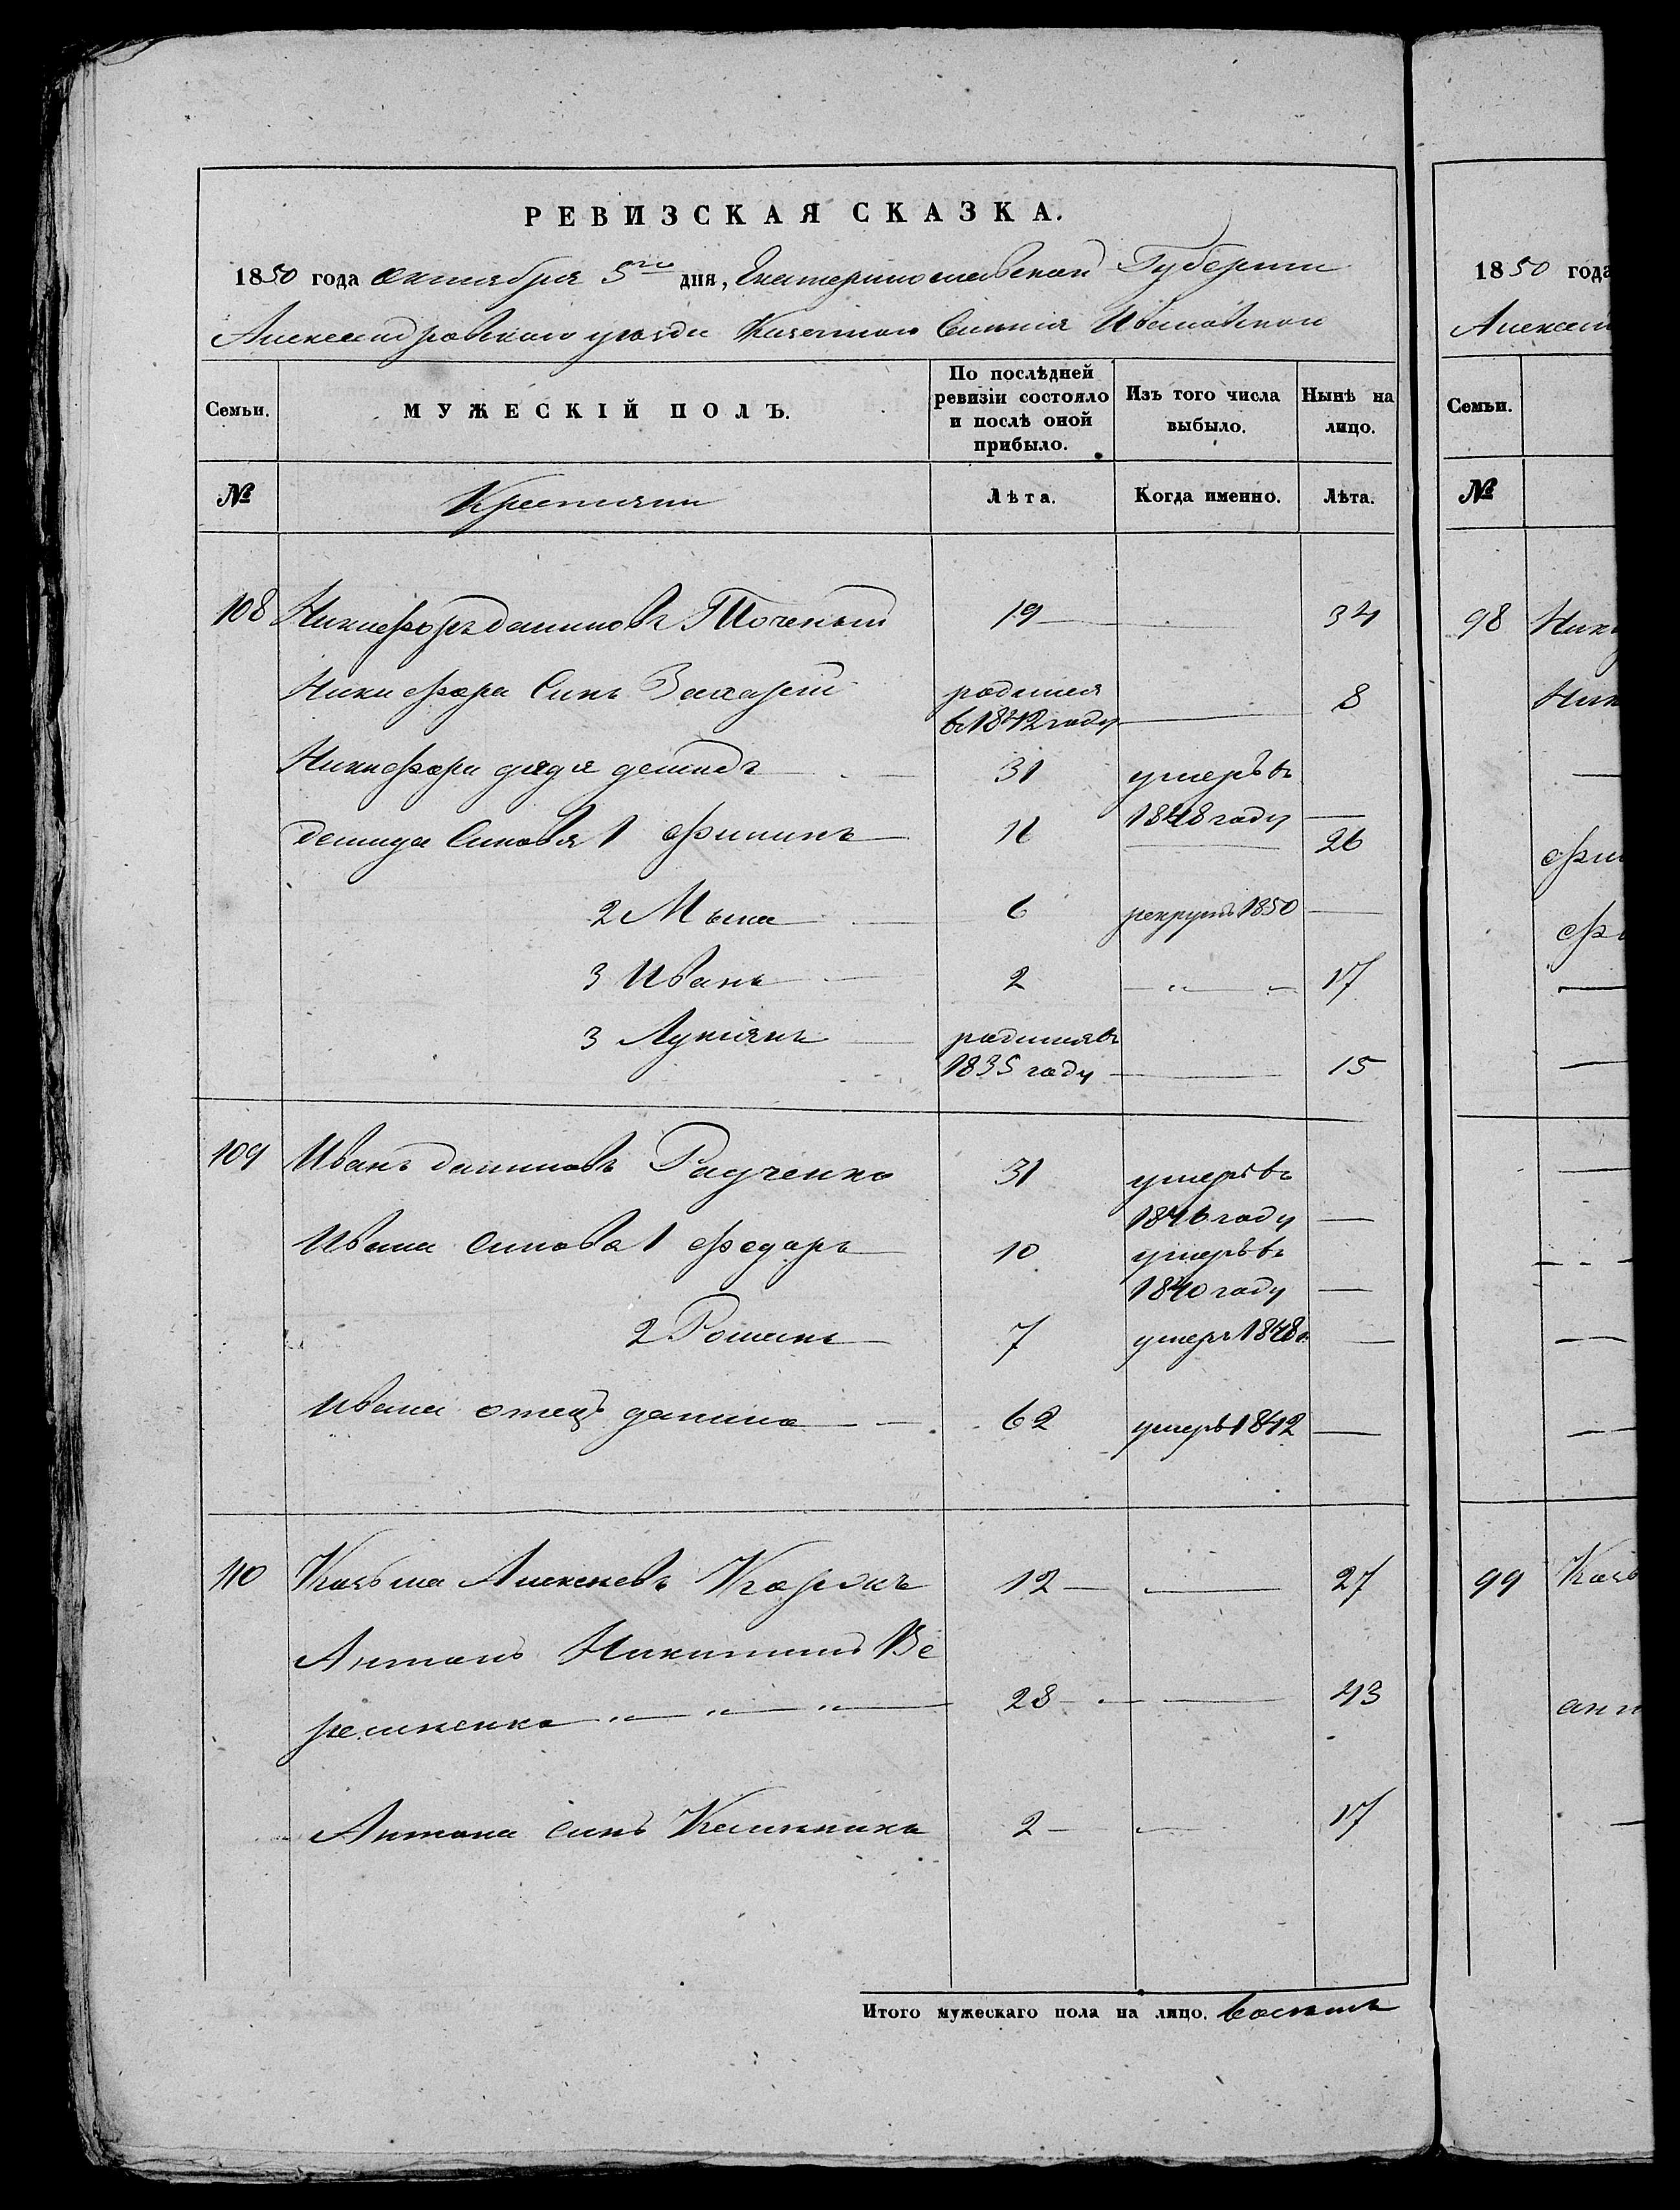 РЕВИЗСКАЯ СКАЗКА.
1850 года октября 5го дня, Екатеринославской Губернии
Александровского уезда Казенного Селения Ивановской
Семьи.
МУЖЕСКІЙ ПОЛЪ.
По послѣдней ревизіи состояло и послѣ оной прибыло.
Изъ того числа выбыло.
Нынѣ на лицо.
№ Крестьяни Лѣта. Когда именно. Лѣта.
108 Никифоръ даниловъ 19 — — 34
Никифора Синъ Захарій родился в 1842 году — 8
Никифора дядя демидъ — 31 умеръ въ 1848 году —
демида Синовя 1 филипъ — 11 — 26
2 — 6 рекрутъ 1850 —
3 Иванъ — 2 — " — " — 17
3 Лукіянъ — родился въ 1835 году — — 15
109 Иванъ даниловъ Радченко 31 умеръ въ 1846 году —
Ивана Синова 1 федоръ — 10 умеръ въ 1840 году —
2 Романъ — 7 умеръ 1848 г. —
Ивана отецъ данило — — 62 умеръ 1842 —
110 Козьма Алексеевъ 12 — — 27
Антонъ Никитинъ Ве
ременко " — " — " — 28 — — 43
Антона синъ Калиникъ 2 — — 17
Итого мужескаго пола на лицо. восемь
1850 года
Алексан
Семьи.
№
98 Ники
Ник
фил
99 Козь
ант